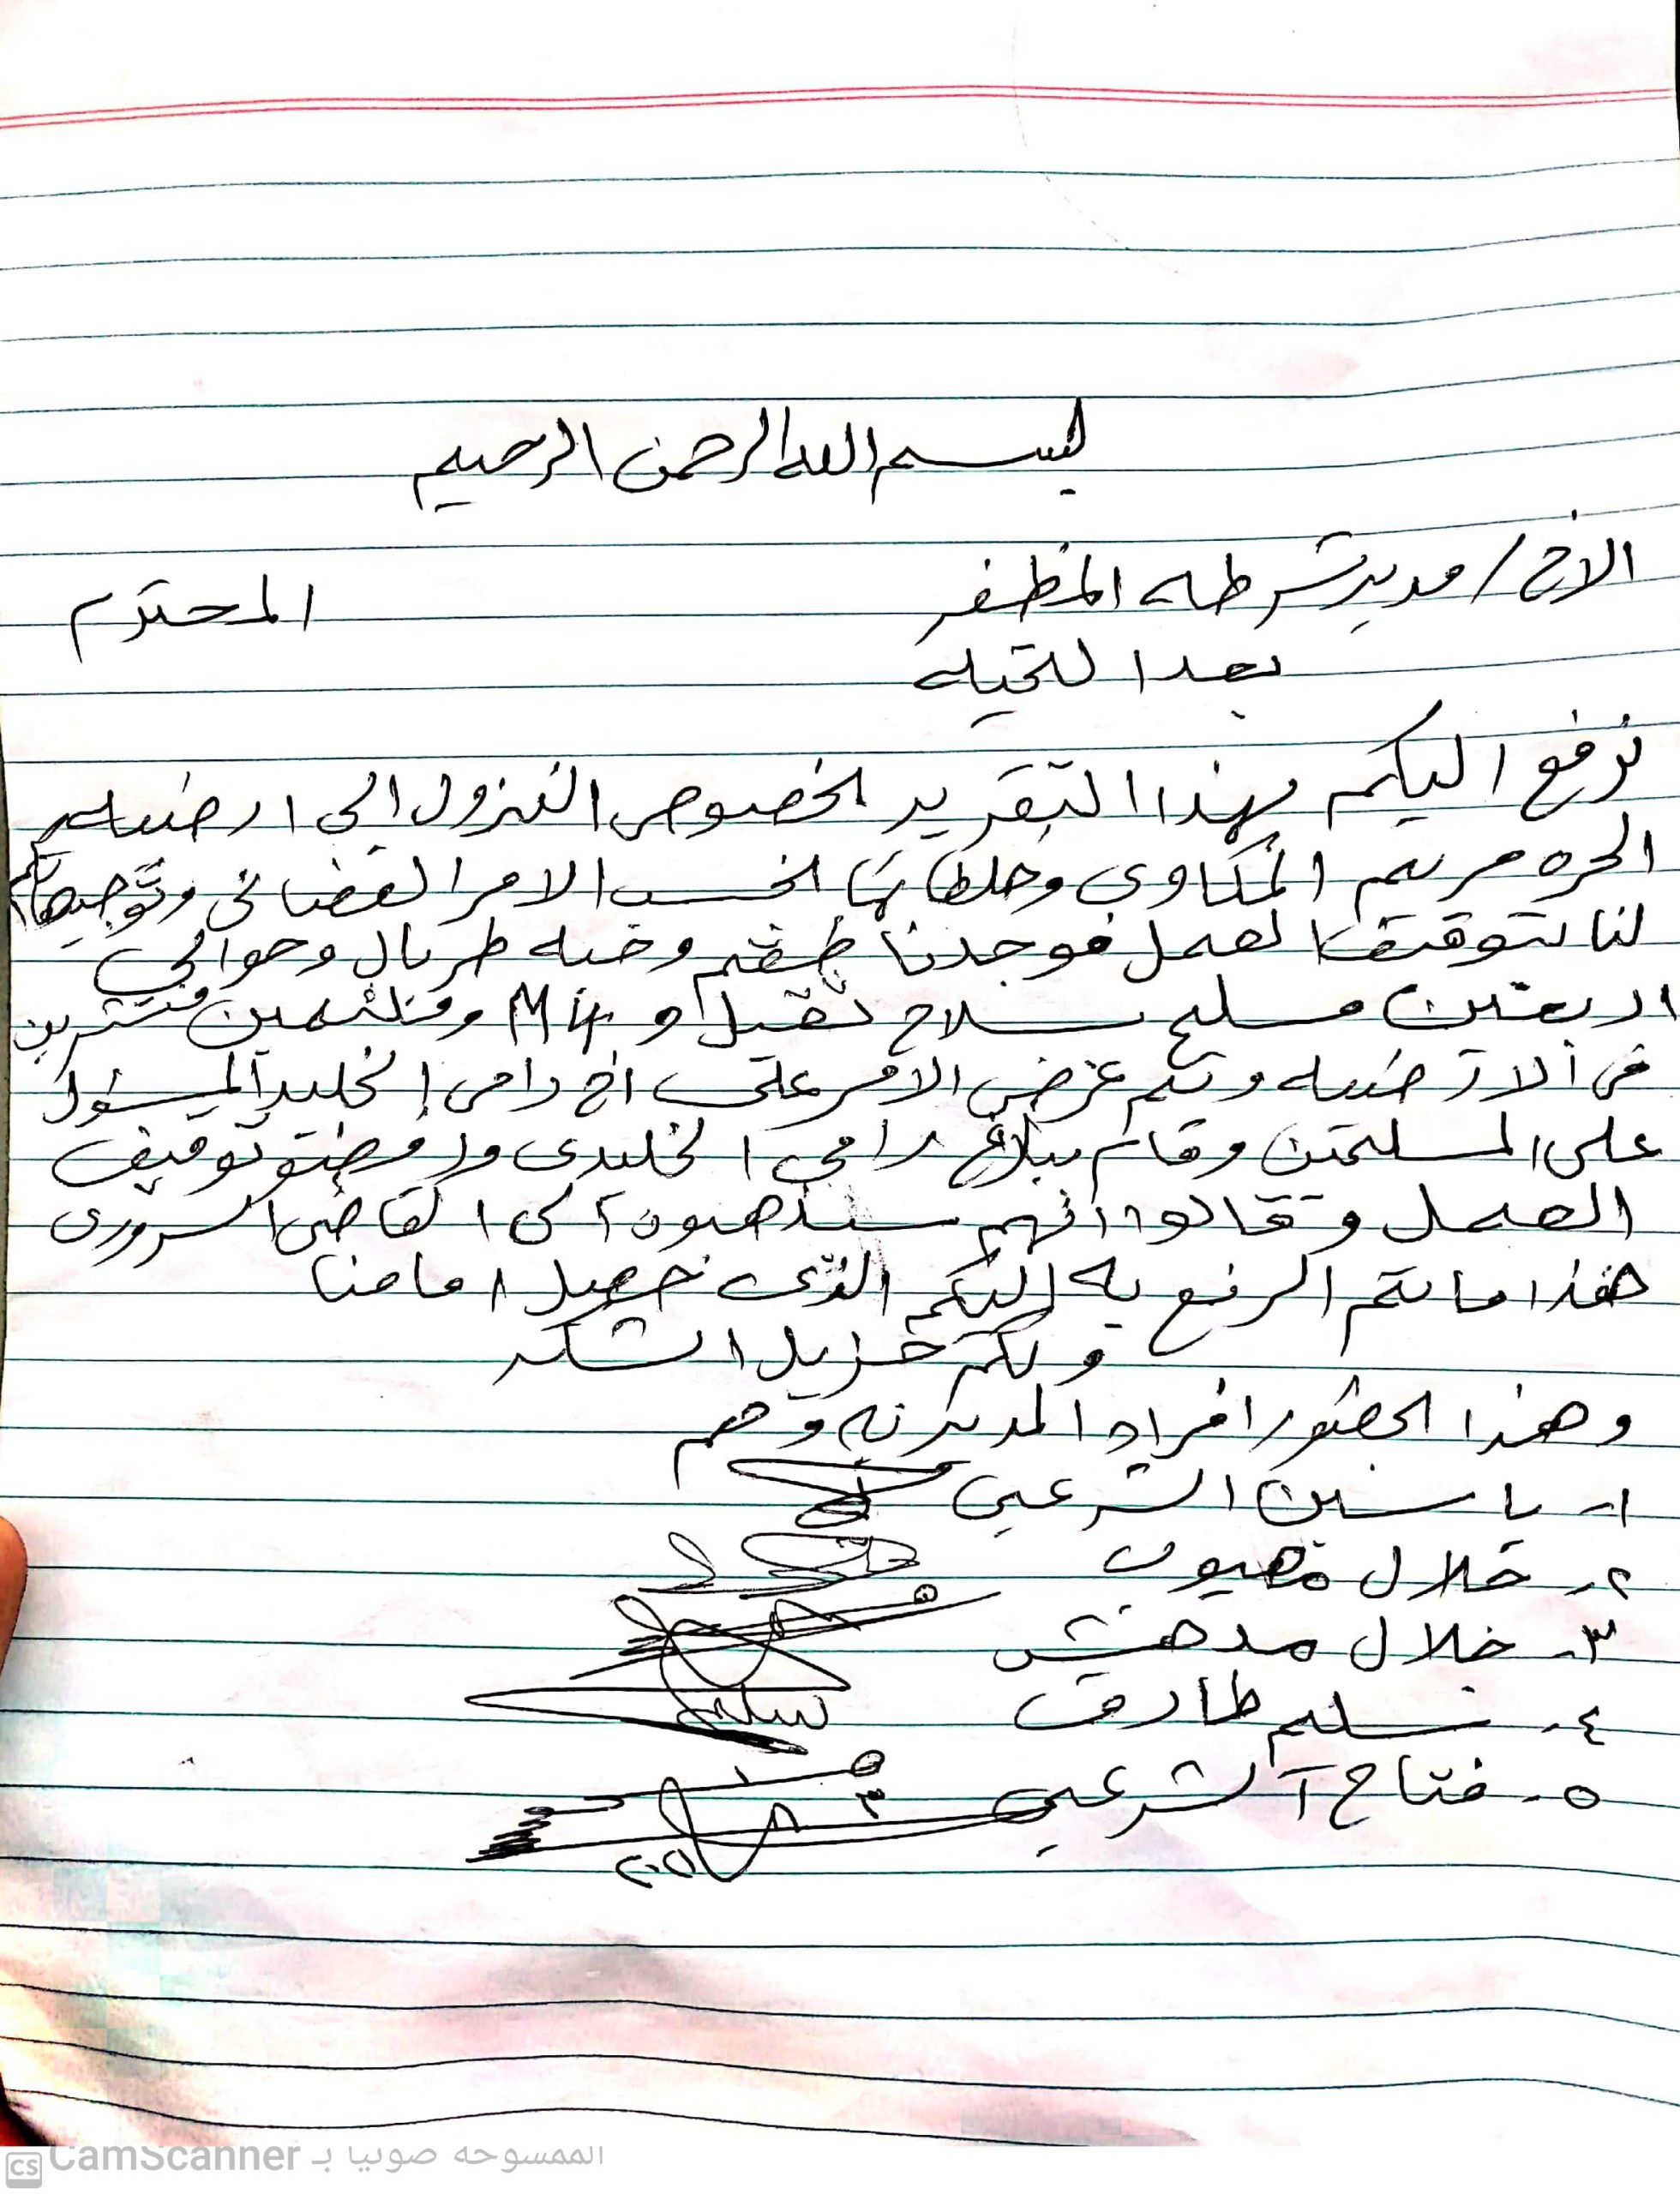 بسم الله الرحمن الرحيم
الاخ / مدير شرطه المظفر المحترم
بعد التحيه
نرفع اليكم بهذا التقرير بخصوص النزول الى ارضيه
الحره مريم المكاوي بحسب الامر القضائي وتوجيهاتكم
لنا بتوقيف العمل فوجدنا طقم وفيه طربال وحوالي
اربعين مسلح سلاح ثقيل و M4 وملثمين منتشرين
في الارضيه وتم عرض الامر على اخ رامي الخليدي المسؤول
على المسلحين وقام ببلاغ رامي الخليدي ورفضو توقيف
العمل وقالوا انهم سيذهبون الى القاضي السروري
هذا ما تم الرفع به اليكم الذي حصل امامنا
ولكم جزيل الشكر
وهذا بحضور افراد المديرية وهم
١- ياسين الشرعبي
٢- جلال مهيوب
٣- جلال مدهش
٤- سليم طارق
سليم
٥- فتاح الشرعبي
الممسوحه ضوئيا بـ CamScanner
CS